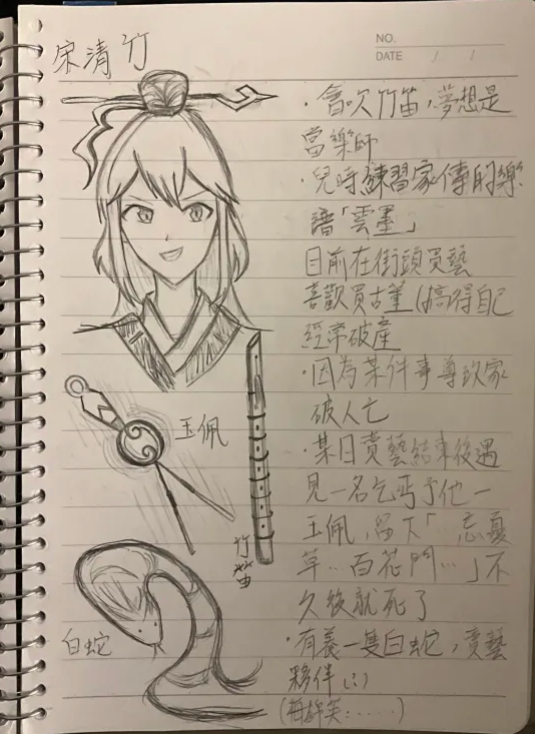 宋清竹
NO.
DATE / /
·會吹竹笛，夢想是
當樂師
·兒時練習家傳的樂
譜「雲墨」
目前在街頭賣藝
喜歡買古董(搞得自己
經常破產
·因為某件事導致家
破人亡
·某日賣藝結束後遇
見一名乞丐予他一
玉佩，留下「忘憂
草…百花門…」不
久後就死了
·有養一隻白蛇，賣藝
夥伴(?)
玉佩
竹笛
白蛇